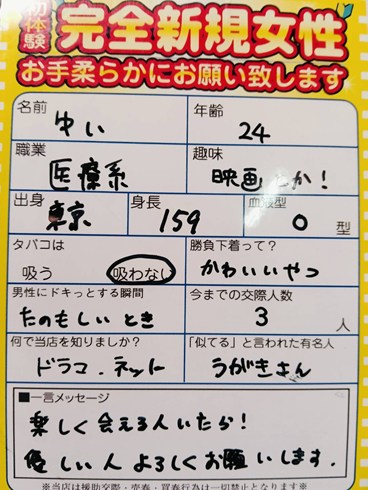 初体験
完全新規女性
お手柔らかにお願い致します
名前
ゆい
年齢
24
職業
医療系
趣味
映画とか！
出身
東京
身長
159
血液型
O 型
タバコは
吸う 吸わない
勝負下着って？
かわいいやつ
男性にドキっとする瞬間
たのもしいとき
今までの交際人数
3 人
何で当店を知りましたか？
ドラコ・ネット
「似てる」と言われた有名人
うがきさん
■一言メッセージ
楽しく会える人いたら！
優しい人よろしくお願いします.
※当店は援助交際・売春・買春行為は一切禁止となります※